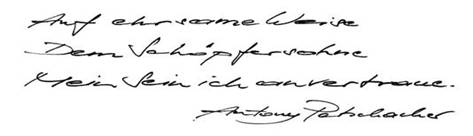 Auf ehrsame Weise
Dem Schöpfersohne
Mein Sein ich anvertraue.
Antony Patschacher